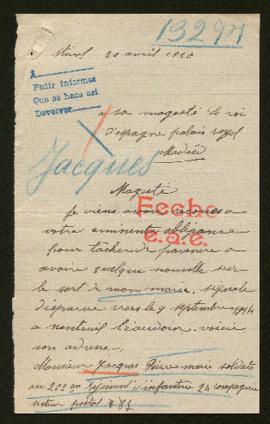 13294
20 avril 1920
A
Pedir informes
Que se hace asi
Devolver
a sa magesté le roi
d'espagne palais royal
Madrid
Jacques
Magesté
je viens avoir recours a
votre éminente obligeance
Fecho
c.a.e.
pour tâcher de parvenir a
avoire quelque nouvelle sur
le sort de mon marie,
disparue vers le 9 septembre 1914
a nanteuil voici
son adresse.
Monsieur Jacques Pierre marie soldats
au 202 en regiment d'infanterie 24 compagnie
secteur postal 85